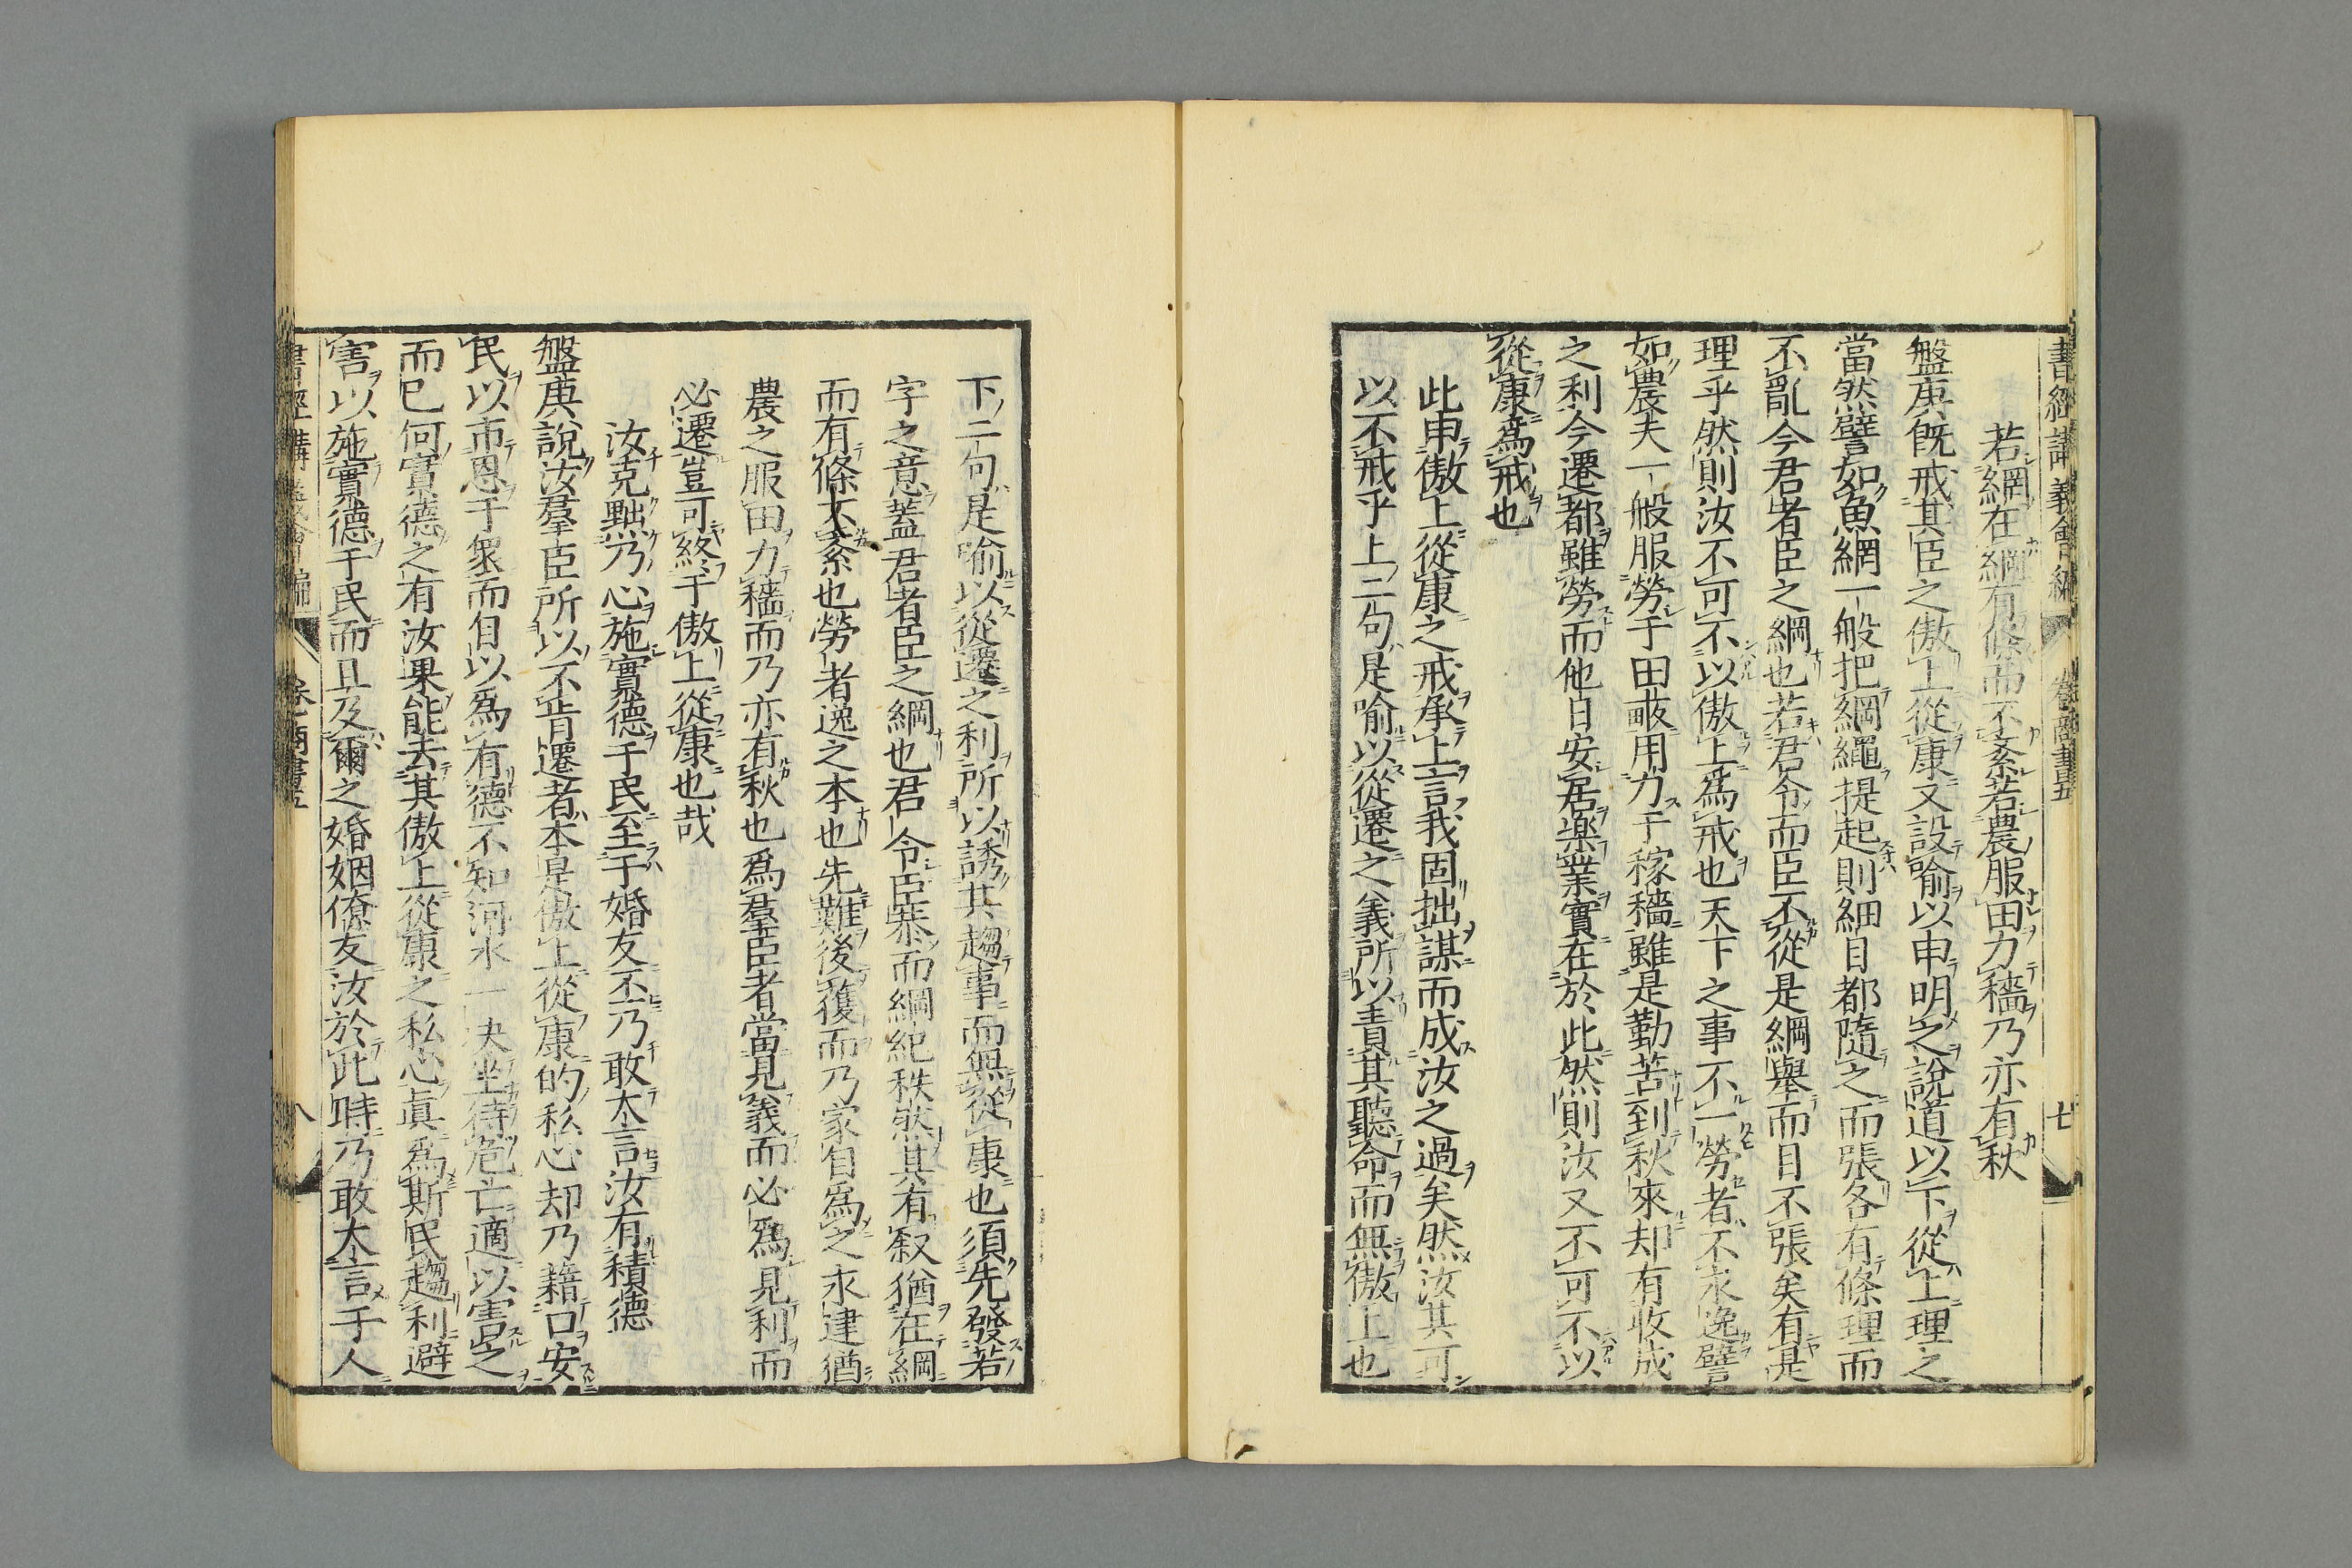 書經講義會編 卷商書五 七
若網在綱有條而不紊若農服田力穡乃亦有秋
盤庚旣戒其臣之傲上從康又設喻以申明之說道以下從上理之
當然譬如魚網一般把綱繩提起則細目都隨之而張各有條理而
不亂今君者臣之綱也若君令而臣不從是綱舉而目不張矣有是
理乎然則汝不可不以傲上爲戒也天下之事不一勞者不永逸譬
如農夫一般服勞于田畝用力于稼穡雖是勤苦到秋來却有收成
之利今遷都雖勞而他日安居樂業實在於此然則汝又不可不以
從康爲戒也
此申傲上從康之戒承上言我固拙謀而成汝之過矣然汝其可
以不戒乎上二句是喻以從遷之義所以責其聽命而無傲上也
下二句是喻以從遷之利所以誘其趨事而無從康也須先發若
字之意蓋君者臣之綱也君令臣恭而綱紀秩然其有叙猶在綱
而有條不紊也勞者逸之本也先難後獲而乃家自爲之永建猶
農之服田力穡而乃亦有秋也爲羣臣者當見義而必爲見利而
必遷豈可終于傲上從康也哉
汝克黜乃心施實德于民至于婚友丕乃敢大言汝有積德
盤庚說汝羣臣所以不肯遷者本是傲上從康的私心却乃藉口安
民以市恩于衆而自以爲有德不知河水一決坐待危亡適以害之
而已何實德之有汝果能去其傲上從康之私心眞爲斯民趨利避
害以施實德于民而且及爾之婚姻僚友汝於此時乃敢大言于人
書經講義會編 卷商書五 八